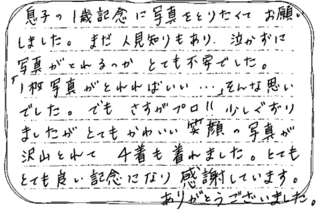 息子の1歳記念に写真をとりたくて お願い
しました。まだ人見知りもあり、泣かずに
写真がとれるのか とても不安でした。
「1枚写真がとれればいい…」そんな思い
でした。でも さすがプロ!! 少しぐずり
ましたが とてもかわいい 笑顔の写真が
沢山とれて 4着も着れました。とても
とても良い記念になり 感謝しています。
ありがとうございました。